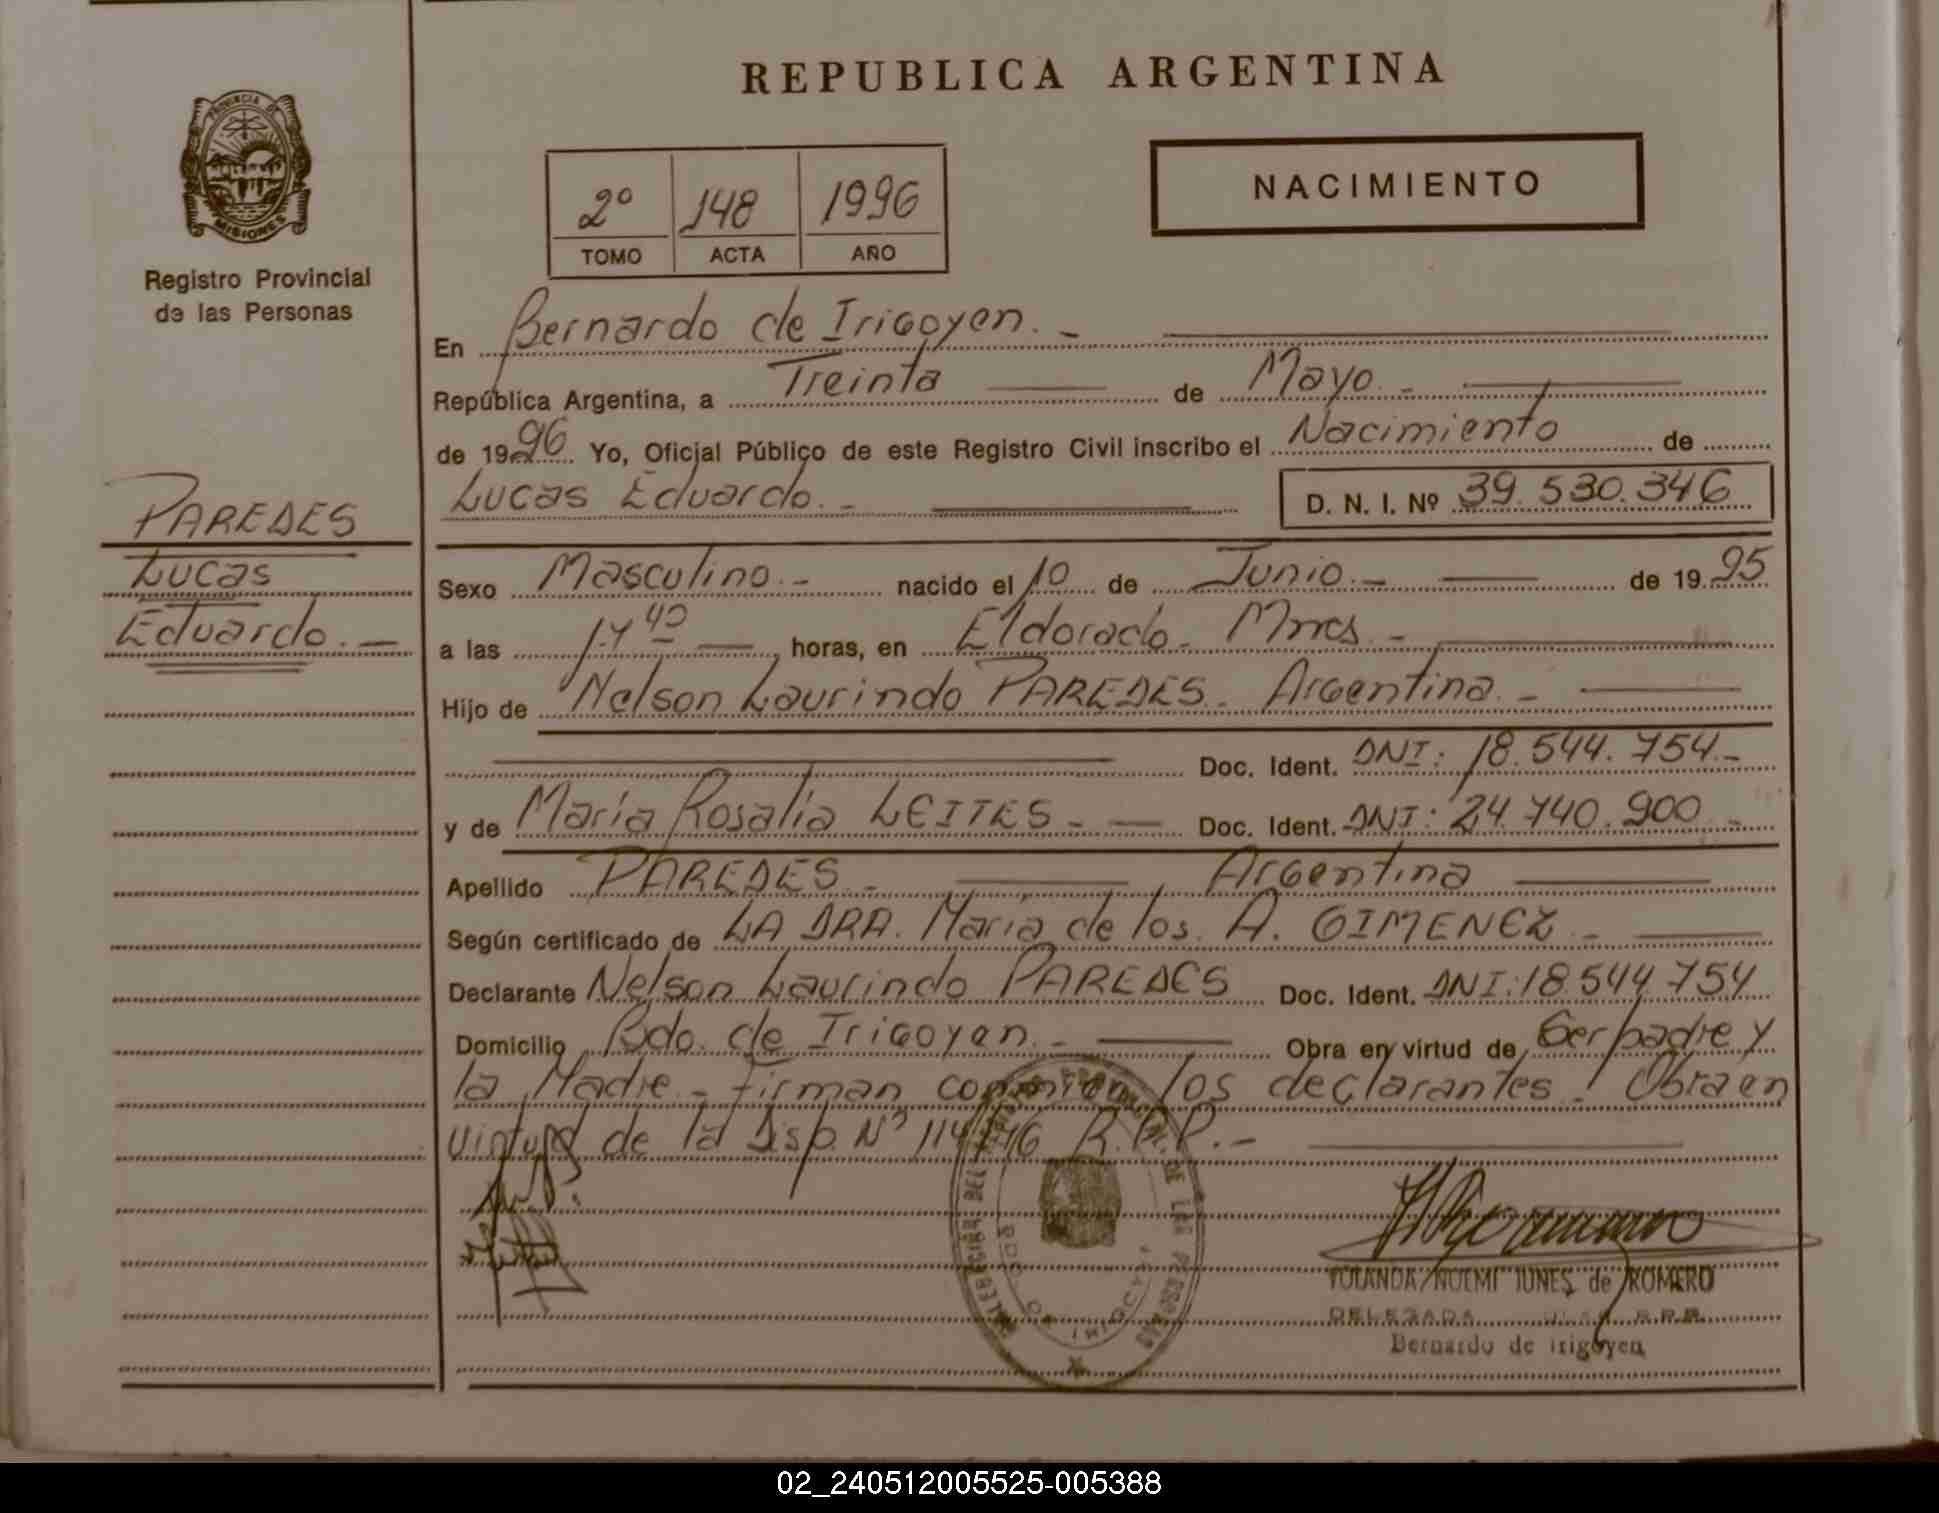 REPUBLICA ARGENTINA
PROVINCIA DE
MISIONES
Registro Provincial
de las Personas
2º 148 1996
TOMO ACTA AÑO
NACIMIENTO
En Bernardo de Irigoyen.-
República Argentina, a Treinta de Mayo.-
de 1996 Yo, Oficial Público de este Registro Civil inscribo el Nacimiento de
Lucas Eduardo.- D. N. I. Nº 39.530.346
PAREDES
Lucas
Eduardo.-
Sexo Masculino.- nacido el 10 de Junio.- de 1995
a las 17 40 horas, en Eldorado- Mnes.-
Hijo de Nelson Laurindo PAREDES- Argentina.-
Doc. Ident. DNI: 18.544.754-
y de María Rosalia LEITES- Doc. Ident. DNI: 24.740.900-
Apellido PAREDES- Argentina
Según certificado de LA DRA. María de los A. GIMENEZ-
Declarante Nelson Laurindo PAREDES Doc. Ident. DNI: 18.544.754
Domicilio Bdo. de Irigoyen.- Obra en virtud de Ser padre y
la Madre- Firman conmigo los declarantes. Obra en
virtud de la Disp. Nº R.P.P.-
YOLANDA NOEMI IUNES de ROMERO
DELEGADA R.P.P.
Bernardo de Irigoyen
02_240512005525-005388